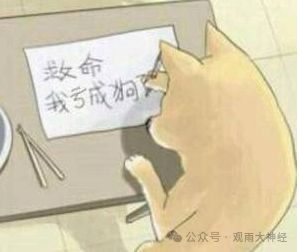 救命
我亏成狗了
公众号·观雨大神经